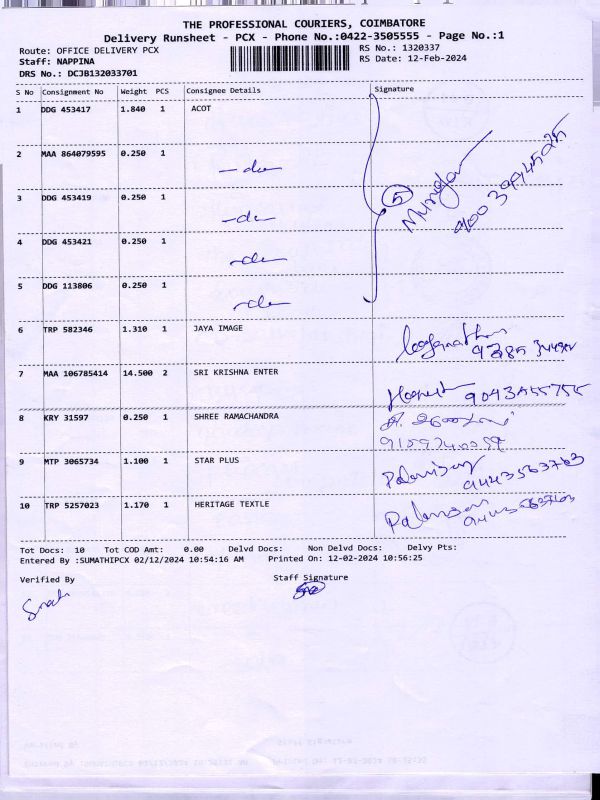 THE PROFESSIONAL COURIERS, COIMBATORE
Delivery Runsheet - PCX - Phone No.:0422-3505555 - Page No.:1
Route: OFFICE DELIVERY PCX RS No.: 1320337
Staff: NAPPINA RS Date: 12-Feb-2024
DRS No.: DCJB132033701
S No Consignment No Weight PCS Consignee Details Signature
1 DDG 453417 1.840 1 ACOT
2 MAA 864079595 0.250 1 -do-
3 DDG 453419 0.250 1 -do-
4 DDG 453421 0.250 1 -do-
5 DDG 113806 0.250 1 -do-
5
6 TRP 582346 1.310 1 JAYA IMAGE
7 MAA 106785414 14.500 2 SRI KRISHNA ENTER
8 KRY 31597 0.250 1 SHREE RAMACHANDRA
9 MTP 3065734 1.100 1 STAR PLUS 9443563763
10 TRP 5257023 1.170 1 HERITAGE TEXTLE
Tot Docs: 10 Tot COD Amt: 0.00 Delvd Docs: Non Delvd Docs: Delvy Pts:
Entered By :SUMATHIPCX 02/12/2024 10:54:16 AM Printed On: 12-02-2024 10:56:25
Verified By Staff Signature